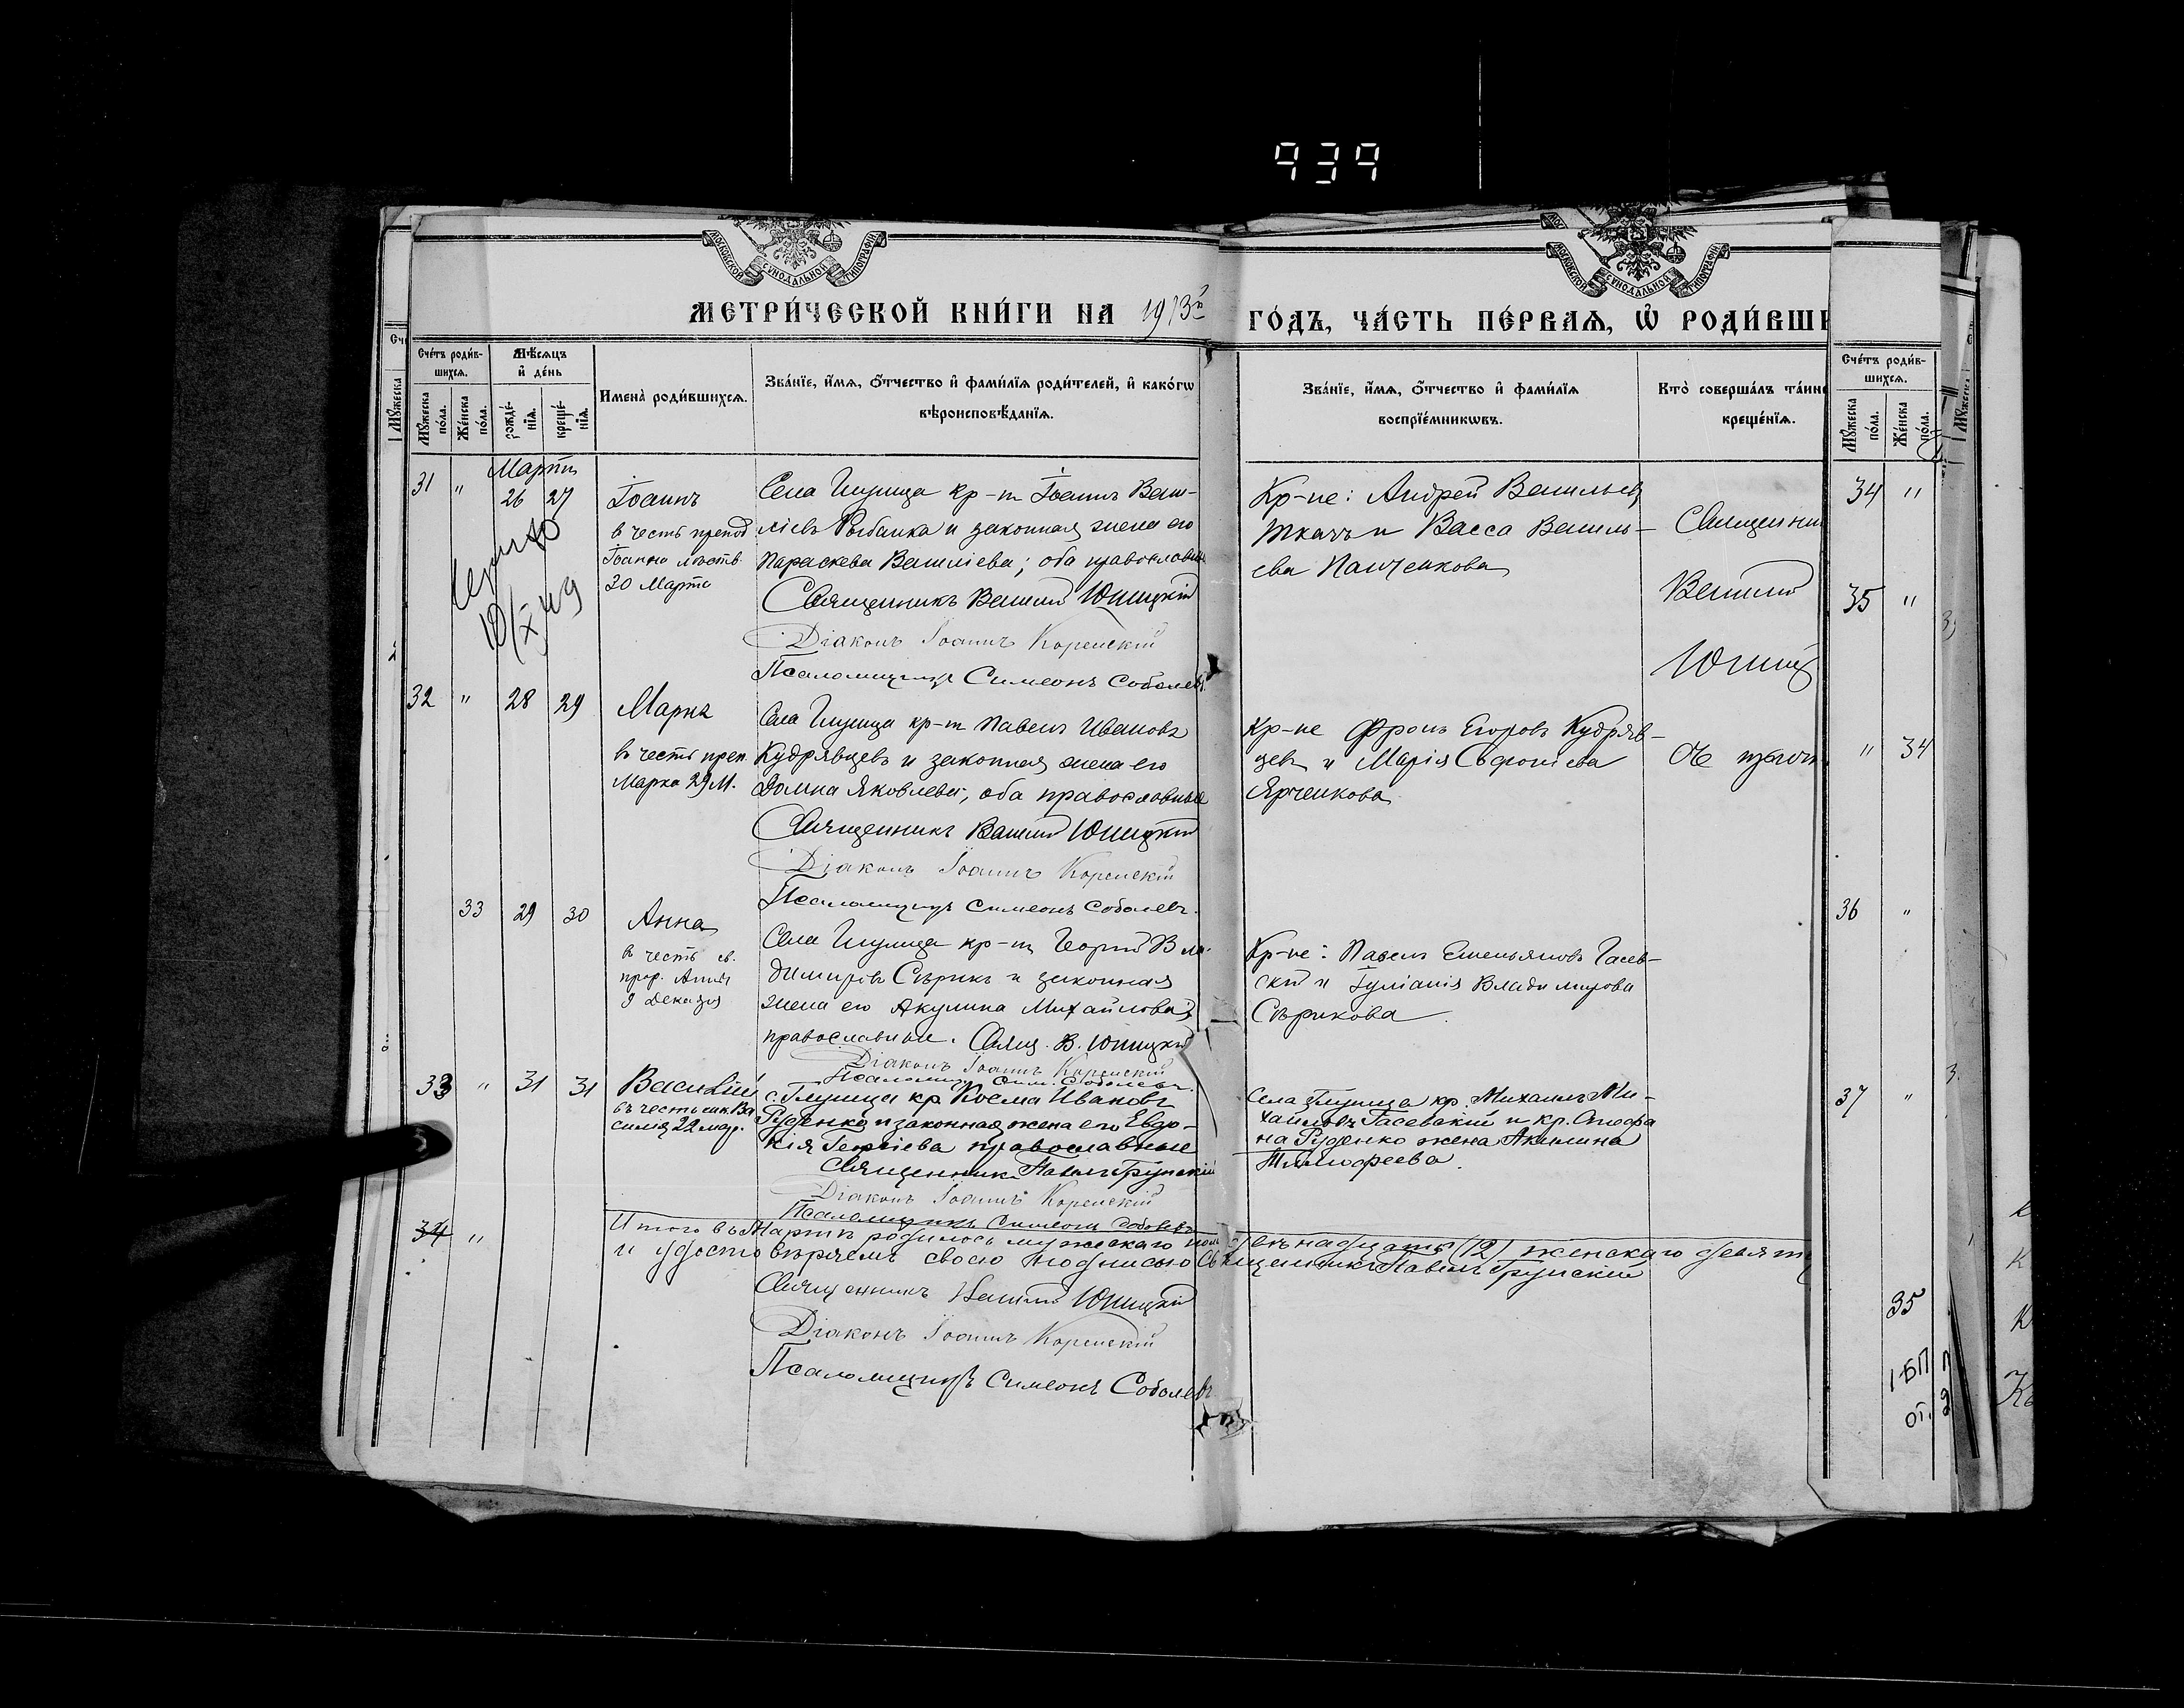 939
МОСКОВСКОЙ СѴНОДАЛЬНОЙ ТИПОГРАФІИ
МОСКОВСКОЙ СѴНОДАЛЬНОЙ ТИПОГРАФІИ
МЕТРИ́ЧЕСКОЙ КНИ́ГИ НА 1913й
ГО́ДЪ, ЧА́СТЬ ПЕ́РВАѦ, Ѡ҆ РОДИ́ВШИ
Сче́тъ роди́в-
шихсѧ.
Мѣ́сѧцъ
и҆ де́нь
Мꙋ́жеска
по́ла.
Же́нска
по́ла.
рожде́-
нїѧ.
креще́-
нїѧ.
Имена̀ роди́вшихсѧ.
Зва́нїе, и҆́мѧ, ѻ҆́тчество и҆ фами́лїѧ роди́телей, и҆ како́гѡ
вѣроисповѣ́данїѧ.
Зва́нїе, и҆́мѧ, ѻ҆́тчество и҆ фами́лїѧ
воспрїе́мникѡвъ.
Кто̀ соверша́лъ та́ин
креще́нїѧ.
Сче́тъ роди́в-
шихсѧ.
Мꙋ́жеска
по́ла.
Же́нска
по́ла.
Мартъ
31 " 26 27
Іоаннъ
в честь препод
Іоанна
20 Марта
10/X 49
Села Глушца кр-нъ Іоаннъ Васи-
ліевъ Рыбалка и законная жена его
Параскева Василіева; оба православные
Священникъ Василій Юницкій
Діаконъ Іоаннъ Коренскій
Псаломщикъ Симеонъ Соболевъ.
Кр-не: Андрей Васильевъ
Ткачъ и Васса Василь-
ева Панченкова
Священни
Василій
Юниц
32 " 28 29
Маркъ
въ честь преп.
Марка 29 М.
Села Глушца кр-нъ Павелъ Ивановъ
Кудрявцевъ и законная жена его
Домна Яковлева, оба православные
Священникъ Василій Юницкій
Діаконъ Іоаннъ Коренскій
Псаломщикъ Симеонъ Соболевъ.
Кр-не Фролъ Егоровъ Кудряв-
цевъ и Марія Софроніева
Ярченкова
33 29 30
Анна
в честь св.
прор. Анны
9 Декабря
Села Глушца кр-нъ Георгій Вла-
диміровъ Сѣрикъ и законная
жена его Акулина Михайлова,
православные. Свящ. В. Юницкій
Діаконъ Іоаннъ Коренскій
Псаломщ. Сим. Соболевъ.
Кр-не: Павелъ Емельяновъ Гасев-
скій и Іуліанія Владимірова
Сѣрикова.
33 " 31 31
Василій
въ честь Ва
силія 22 мар.
с. Глушца кр. Косма Ивановъ
Руденко и законная жена его Евдо-
кія Георгіева православные
Священникъ Павелъ Грунскій
Діаконъ Іоаннъ Коренскій
Псаломщикъ Симеонъ Соболевъ
Села Глушца кр. Михаилъ Ми-
хайловъ Гасевскій и кр. Стефа
на Руденко жена Акилина
Тимофеева.
34 "
Итого въ Мартѣ родилось мужескаго пола двѣнадцать (12) женскаго девять
и удостовѣряемъ своею подписью Священникъ Павелъ Грунскій
Священникъ Василій Юницкій
Діаконъ Іоаннъ Коренскій
Псаломщикъ Симеонъ Соболевъ
34 "
35 "
" 34
36 "
37 "
35
1 БП
от. 2